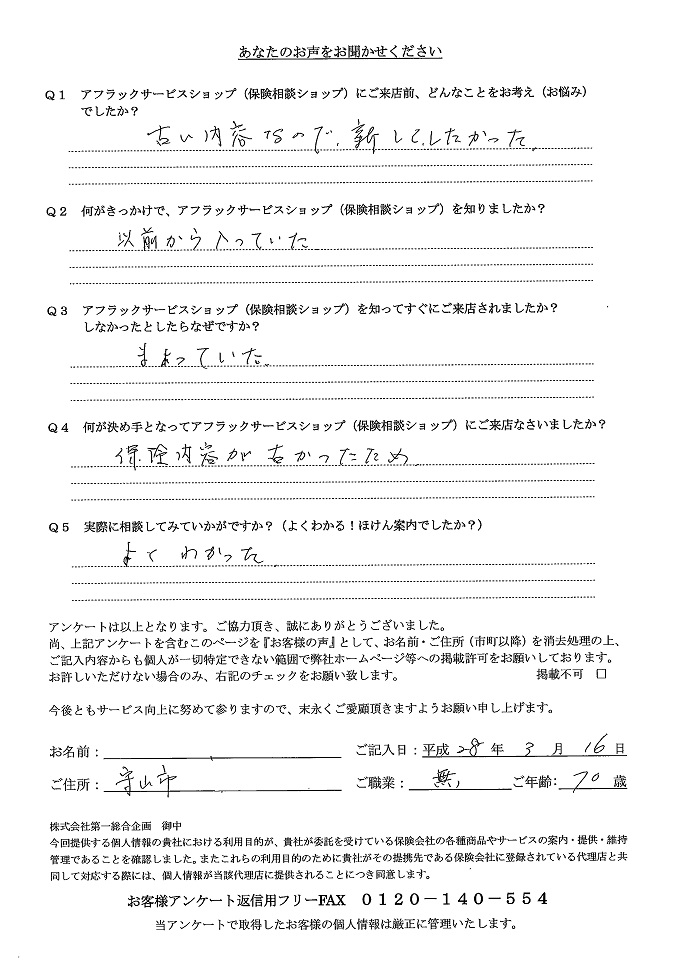 あなたのお声をお聞かせください
Q1 アフラックサービスショップ（保険相談ショップ）にご来店前、どんなことをお考え（お悩み）
でしたか？
古い内容なので、新しくしたかった。
Q2 何がきっかけで、アフラックサービスショップ（保険相談ショップ）を知りましたか？
以前から入っていた
Q3 アフラックサービスショップ（保険相談ショップ）を知ってすぐにご来店されましたか？
しなかったとしたらなぜですか？
まよっていた。
Q4 何が決め手となってアフラックサービスショップ（保険相談ショップ）にご来店なさいましたか？
保険内容が古かったため
Q5 実際に相談してみていかがですか？（よくわかる！ほけん案内でしたか？）
よくわかった
アンケートは以上となります。ご協力頂き、誠にありがとうございました。
尚、上記アンケートを含むこのページを『お客様の声』として、お名前・ご住所（市町以降）を消去処理の上、
ご記入内容からも個人が一切特定できない範囲で弊社ホームページ等への掲載許可をお願いしております。
お許しいただけない場合のみ、右記のチェックをお願い致します。 掲載不可 □
今後ともサービス向上に努めて参りますので、末永くご愛顧頂きますようお願い申し上げます。
お名前： ご記入日：平成 28 年 3 月 16 日
ご住所： 守山市 ご職業： 無 ご年齢： 70 歳
株式会社第一総合企画 御中
今回提供する個人情報の貴社における利用目的が、貴社が委託を受けている保険会社の各種商品やサービスの案内・提供・維持
管理であることを確認しました。またこれらの利用目的のために貴社がその提携先である保険会社に登録されている代理店と共
同して対応する際には、個人情報が当該代理店に提供されることにつき同意します。
お客様アンケート返信用フリーFAX 0120－140－554
当アンケートで取得したお客様の個人情報は厳正に管理いたします。